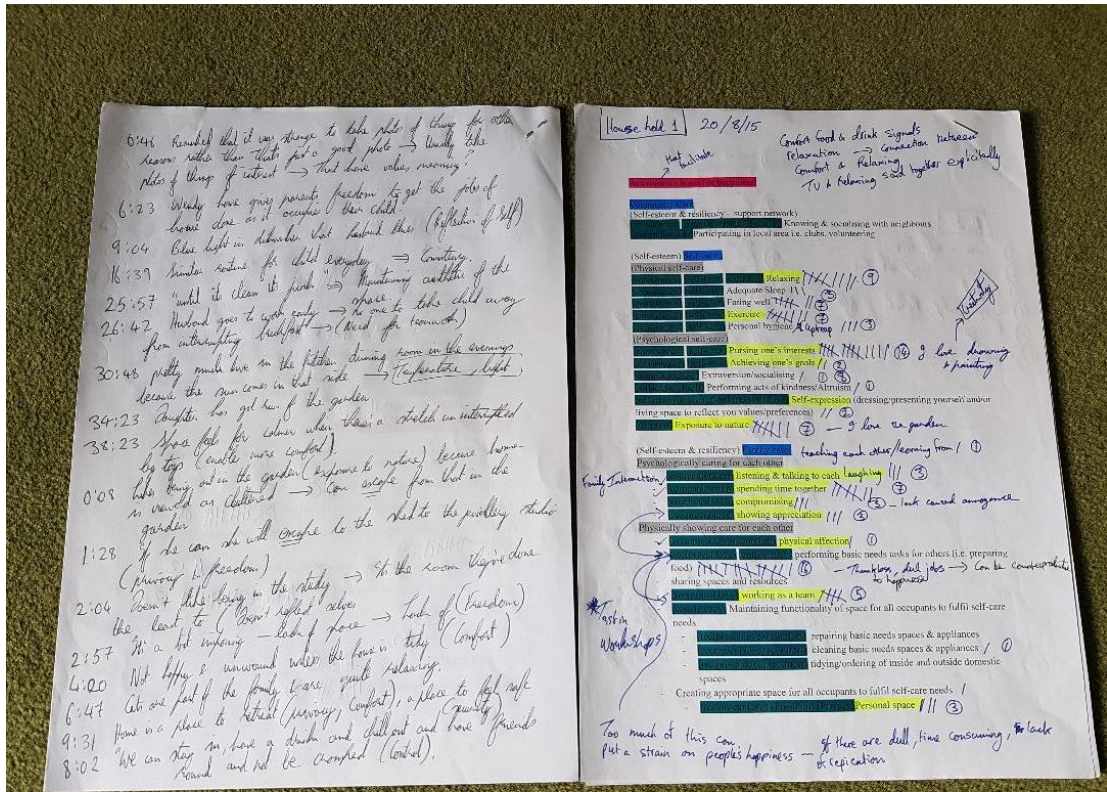 0:46 Remarked that it was strange to take photo of things for other
reasons rather than thats just a good photo → Usually take
photos of things of interest → that have value, meaning
6:23 Wendy house gives parents freedom to get the jobs of
home done as it occupies their child
9:04 Blue light in dishwasher that husband likes (Reflection of Self)
16:39 Similar routine for child everyday →
25:57 "until it clean it Maintaining aesthetic of the
space
26:42 Husband goes to work early → no one to take child away
from interrupting breakfast → (Need for teamwork)
30:48 pretty much live in the kitchen dining room in the evenings
because the sun comes in that side → (Temperature & light)
34:23 Daughter has got run of the garden
38:23 Space feels far calmer when theres a stretch uninterrupted
by toys (enables more comfort)
0:08 Likes being out in the garden (exposure to nature) because home
is viewed as cluttered → Can escape from that in the
garden
1:28 If she can she will escape to the shed to the studio
(privacy & freedom)
2:04 Doesn't like being in the study → Its the room they've done
the least to (Doesn't reflect selves)
2:57 Its a bit imposing – lack of space → Lack of (Freedom)
4:20 Not happy & unwound unless the house is tidy (Comfort)
6:47 Cats are part of the family & are quite relaxing.
9:31 Home is a place to retreat (privacy, Comfort), a place to feel safe
(Security)
8:02 "We can stay in, have a drink and chill out and have friends
round and not be cramped (Control).
House hold 1 20/8/15
Comfort food & drink signals
relaxation → Connection between
Comfort & Relaxing
TV & Relaxing said together explicitally
that facilitate
(Self-esteem & resiliency – support network)
Knowing & socialising with neighbours
Participating in local area i.e. clubs, volunteering
(Self-esteem) Self-care
(Physical self-care)
Relaxing 9
Adequate Sleep
Eating well 7
Exercise
Personal hygiene & upkeep 3
Creativity
(Psychological self-care)
Pursing one's interests 14 I love drawing
& painting
Achieving one's goals 2
Extraversion/socialising 1
Performing acts of kindness/Altruism 1
Self-expression (dressing/presenting yourself and/or
living space to reflect you values/preferences) 2
Exposure to nature 7 – I love the garden
(Self-esteem & resiliency) teaching each other/learning from 1
Psychologically caring for each other
Family Interaction listening & talking to each laughing 3
spending time together 7
compromising 3 – lack caused annoyance
showing appreciation 3
Physically showing care for each other
physical affection 1
performing basic needs tasks for others (i.e. preparing
food) 16 – Thankless, dull jobs → Can be counterproductive
to happiness
sharing spaces and resources
working as a team 5
Maintaining functionality of space for all occupants to fulfil self-care
needs
* Test in
Workshops
repairing basic needs spaces & appliances
cleaning basic needs spaces & appliances 1
tidying/ordering of inside and outside domestic
spaces
Creating appropriate space for all occupants to fulfil self-care needs
Personal space 3
Too much of this can
Put a strain on people's happiness – if there are dull, time consuming, lack
of